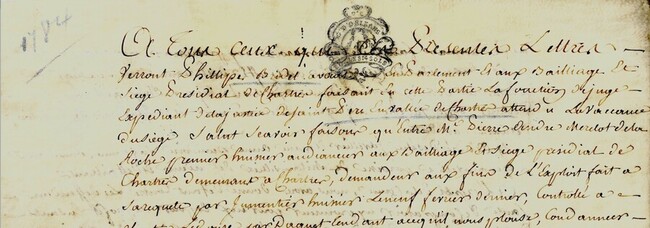 1784
A Tous ceux qui Presentes Lettres
Verront Phillipe avocat Parlement Et aux Bailliage Et
Siege Presidial De Chartres faisant En cette Partie La fonction De juge
Expediant de la de saint Pere En vallée de Chartres attendu La vaccance
du siege Salut Scavoir faisons qu'Entre Me. Pierre André de la
Roche premier huisier audiancier aux Bailliage Et siege presidial de
Chartres demeurant a chartres, demandeur aux fins de L'Exploit fait a
sa requete par jumentier huisier Le neuf fevrier dernier, Controllé a
par Daguet tendant a ce qu'il nous plaise, Condamner